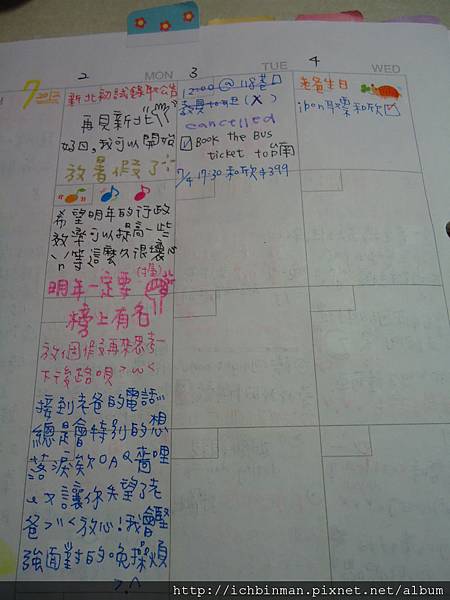 7 2012
2 MON
3 TUE
4 WED
新北初試錄取公告
再見新北
好日,我可以開始
放暑假了
希望明年的行政
效率可以提高一些
等這麼久很壞心
明年一定要
榜上有名
放個假再來思考一
下後路唄>w<
接到老爸的電話
總是會特別的想
落淚欸QAQ
讓你失望了老
爸>"<放心!我會堅
強面對的 免操煩
>.^
1200 @ 118巷口
(X)
cancelled
Book the Bus
ticket to 台南
7/4 17:30 和欣 $399
老爸生日
ibon取票和欣
http://ichbinman.pixnet.net/album